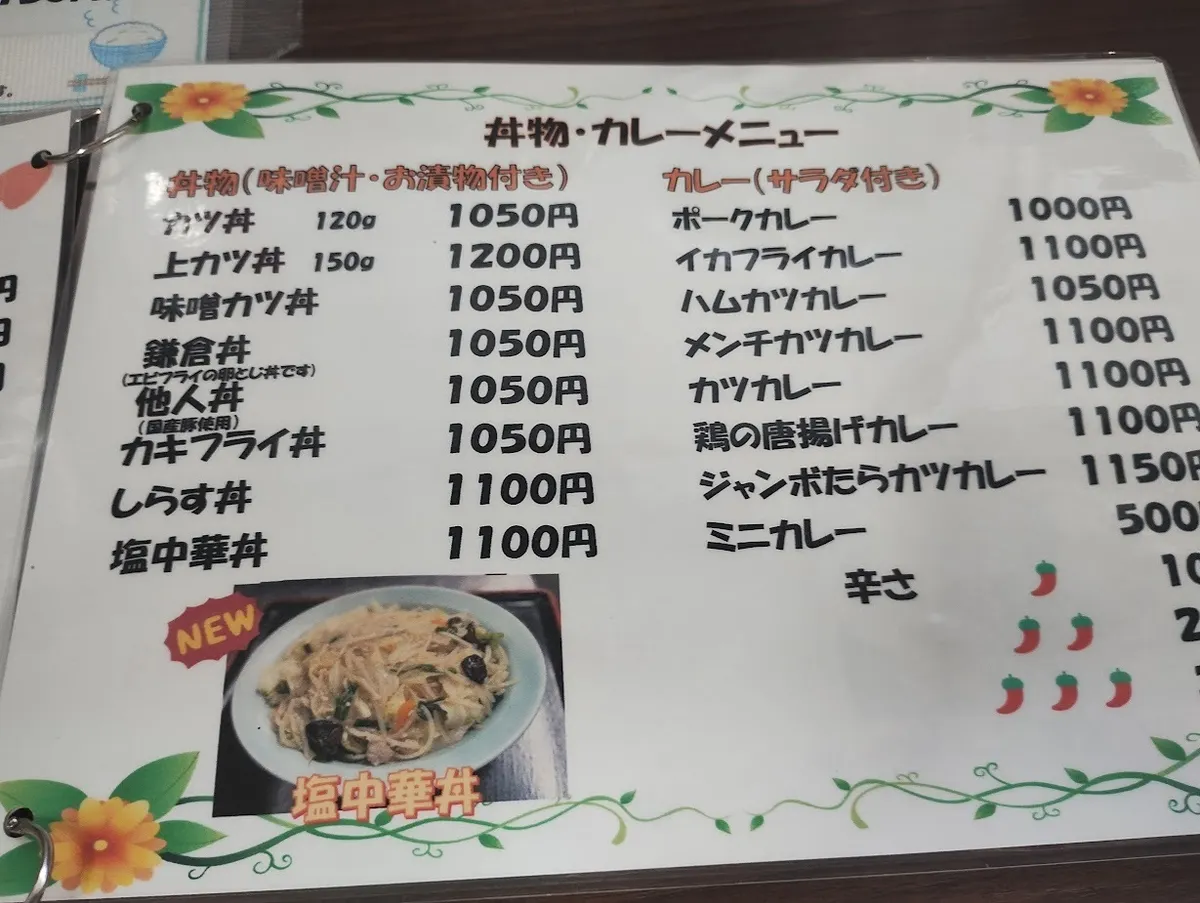 丼物・カレーメニュー
丼物(味噌汁・お漬物付き)
カツ丼 120g 1050円
上カツ丼 150g 1200円
味噌カツ丼 1050円
鎌倉丼 1050円
(エビフライの卵とじ丼です)
他人丼 1050円
(国産豚使用)
カキフライ丼 1050円
しらす丼 1100円
塩中華丼 1100円
NEW
塩中華丼
カレー(サラダ付き)
ポークカレー 1000円
イカフライカレー 1100円
ハムカツカレー 1050円
メンチカツカレー 1100円
カツカレー 1100円
鶏の唐揚げカレー 1100円
ジャンボたらカツカレー 1150円
ミニカレー 500
辛さ